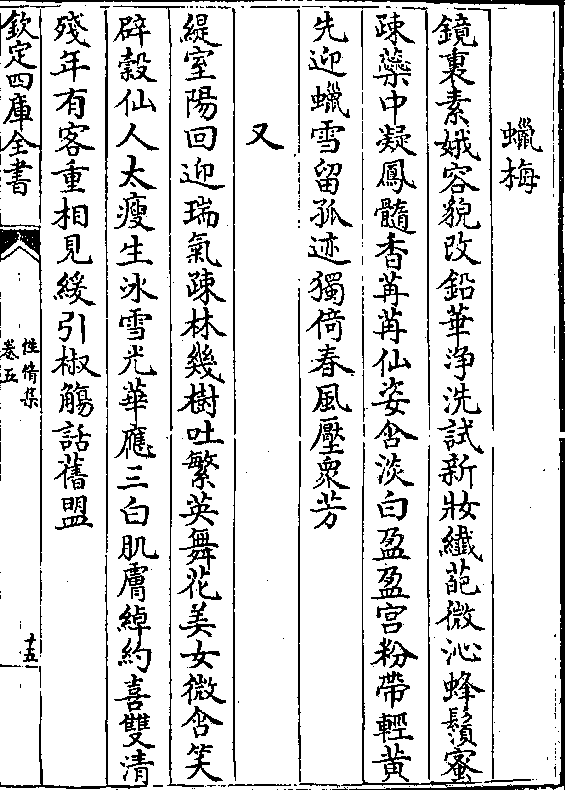 蠟梅
鏡裏素娥容貌改鉛華浄洗試新妝纖葩微沁蜂鬚蜜
疎蘂中凝鳳髓香苒苒仙姿含淡白盈盈宫粉帶輕黄
先迎蠟雪留孤迹獨倚春風壓衆芳
又
緹室陽回迎瑞氣疎林幾樹吐繁英舞花美女微含笑
辟穀仙人太瘦生氷雪光華應三白肌膚綽約喜雙清
殘年有客重相見緩引椒觴話舊盟
欽定四庫全書
性情集
卷五
十五